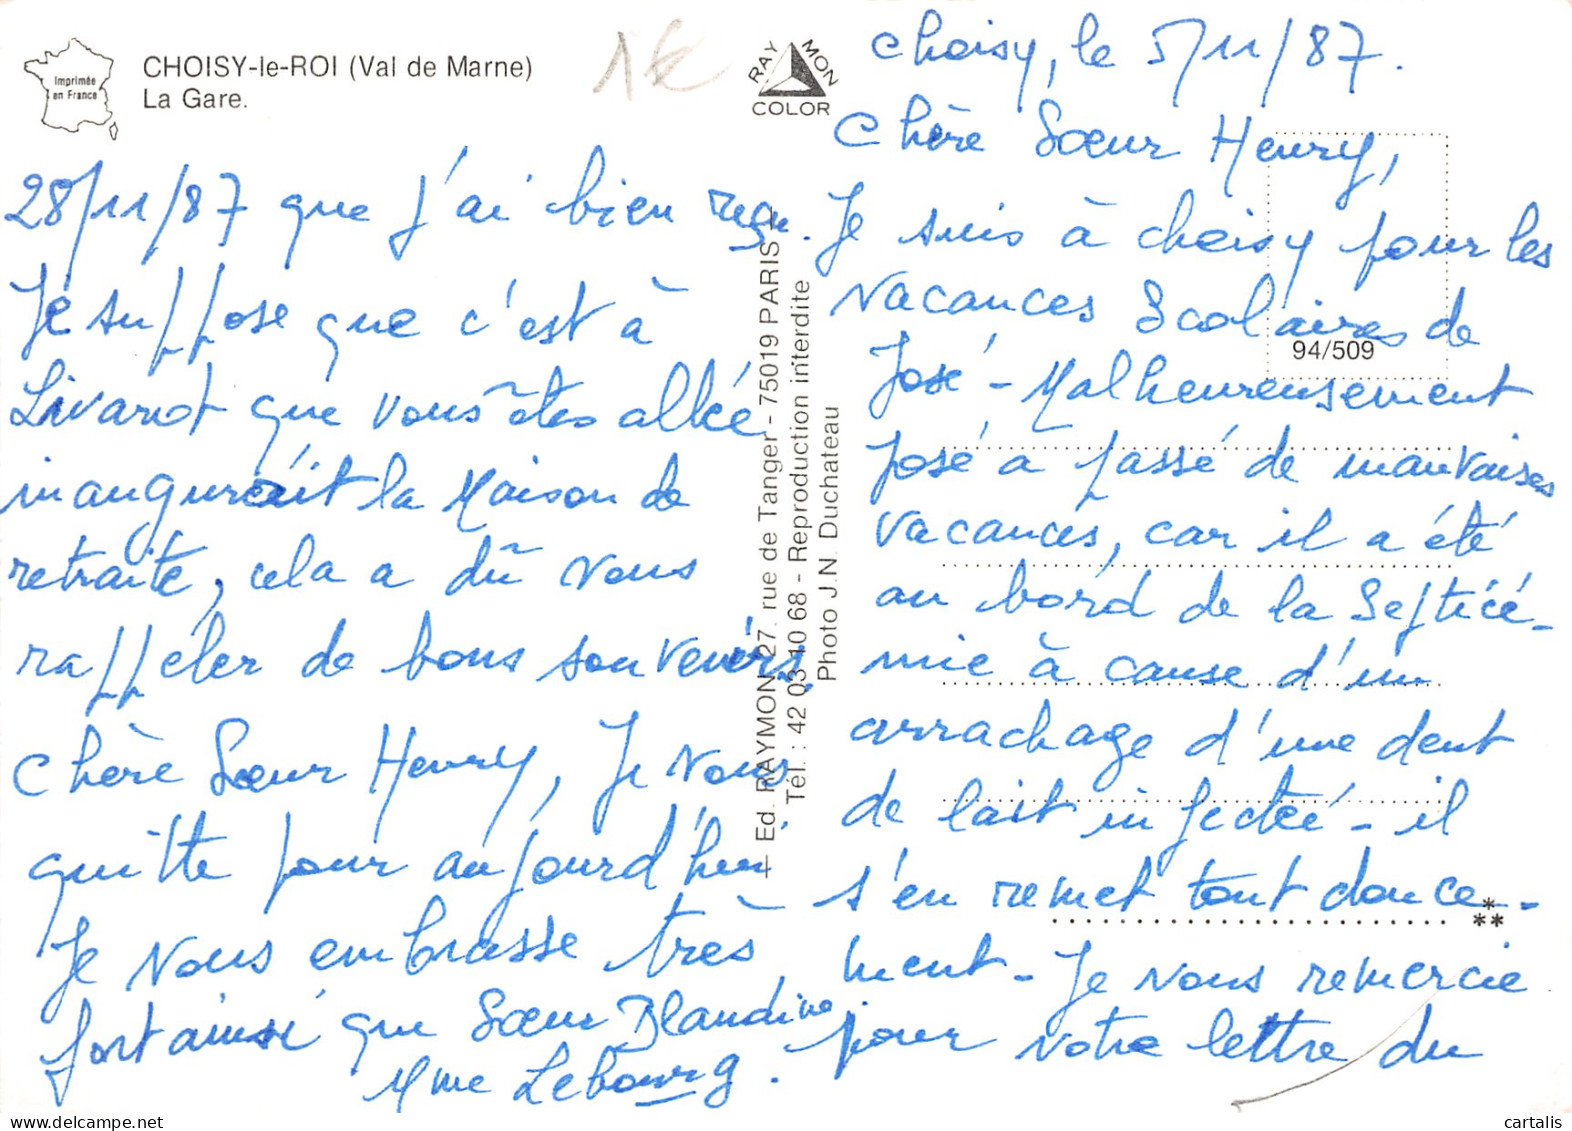 Imprimée
en France
CHOISY-le-ROI (Val de Marne)
La Gare.
1€
RAYMON
COLOR
Choisy, le 5/11/87.
Chère Sœur Henry,
Je suis à choisy pour les
vacances Scolaires de
José - Malheureusement
José a passé de mauvaises
vacances, car il a été
au bord de la Septicé-
mie à cause d'un
arrachage d'une dent
de lait infectée - il
s'en remet tout douce-
ment - Je vous remercie
pour votre lettre du
94/509
*
**
28/11/87 que j'ai bien reçu.
Je suppose que c'est à
Livarot que vous êtes allée
inaugurait la Maison de
retraite, cela a dû vous
rappeler de bons souvenirs.
Chère Sœur Henry, Je vous
quitte pour aujourd'hui
Je vous embrasse très
fort ainsi que Sœur Blandine
Mme Lebourg.
Ed. RAYMON, 27, rue de Tanger - 75019 PARIS
Tél. : 42 03 40 68 - Reproduction interdite
Photo J.N. Duchateau
cartalis